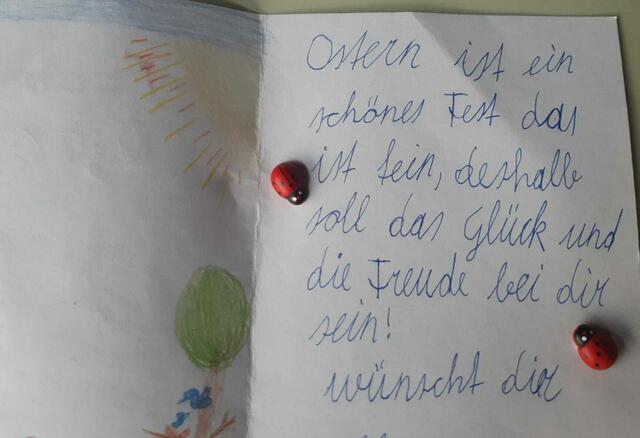 Ostern ist ein
schönes Fest das
ist fein, deshalb
soll das Glück und
die Freude bei dir
sein!
wünscht dir